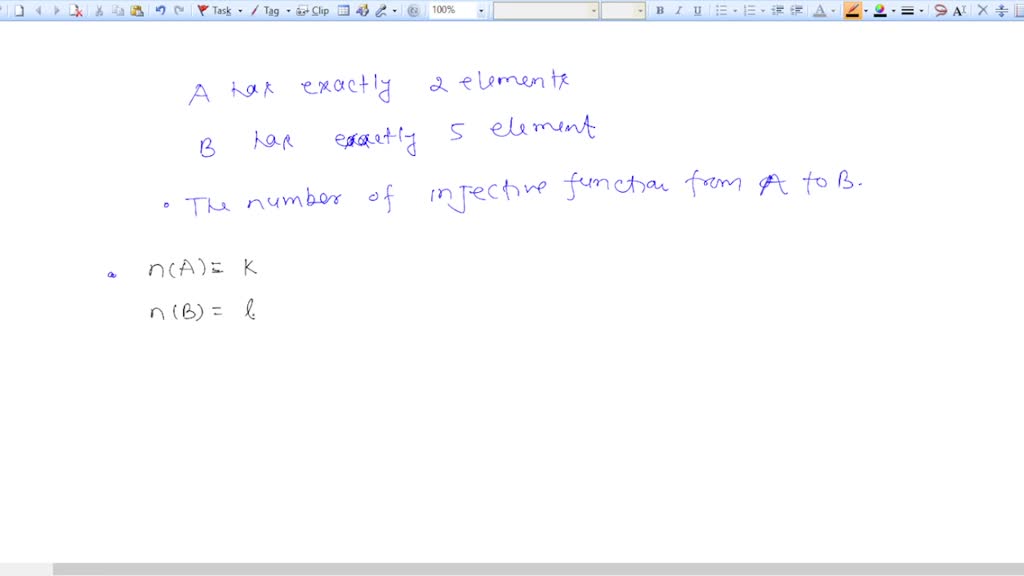 Task Tag Clip 100% B I U A
A has exactly 2 elements
B has exactly 5 element
• The number of injective function from A to B.
• n(A) = K
n(B) = l